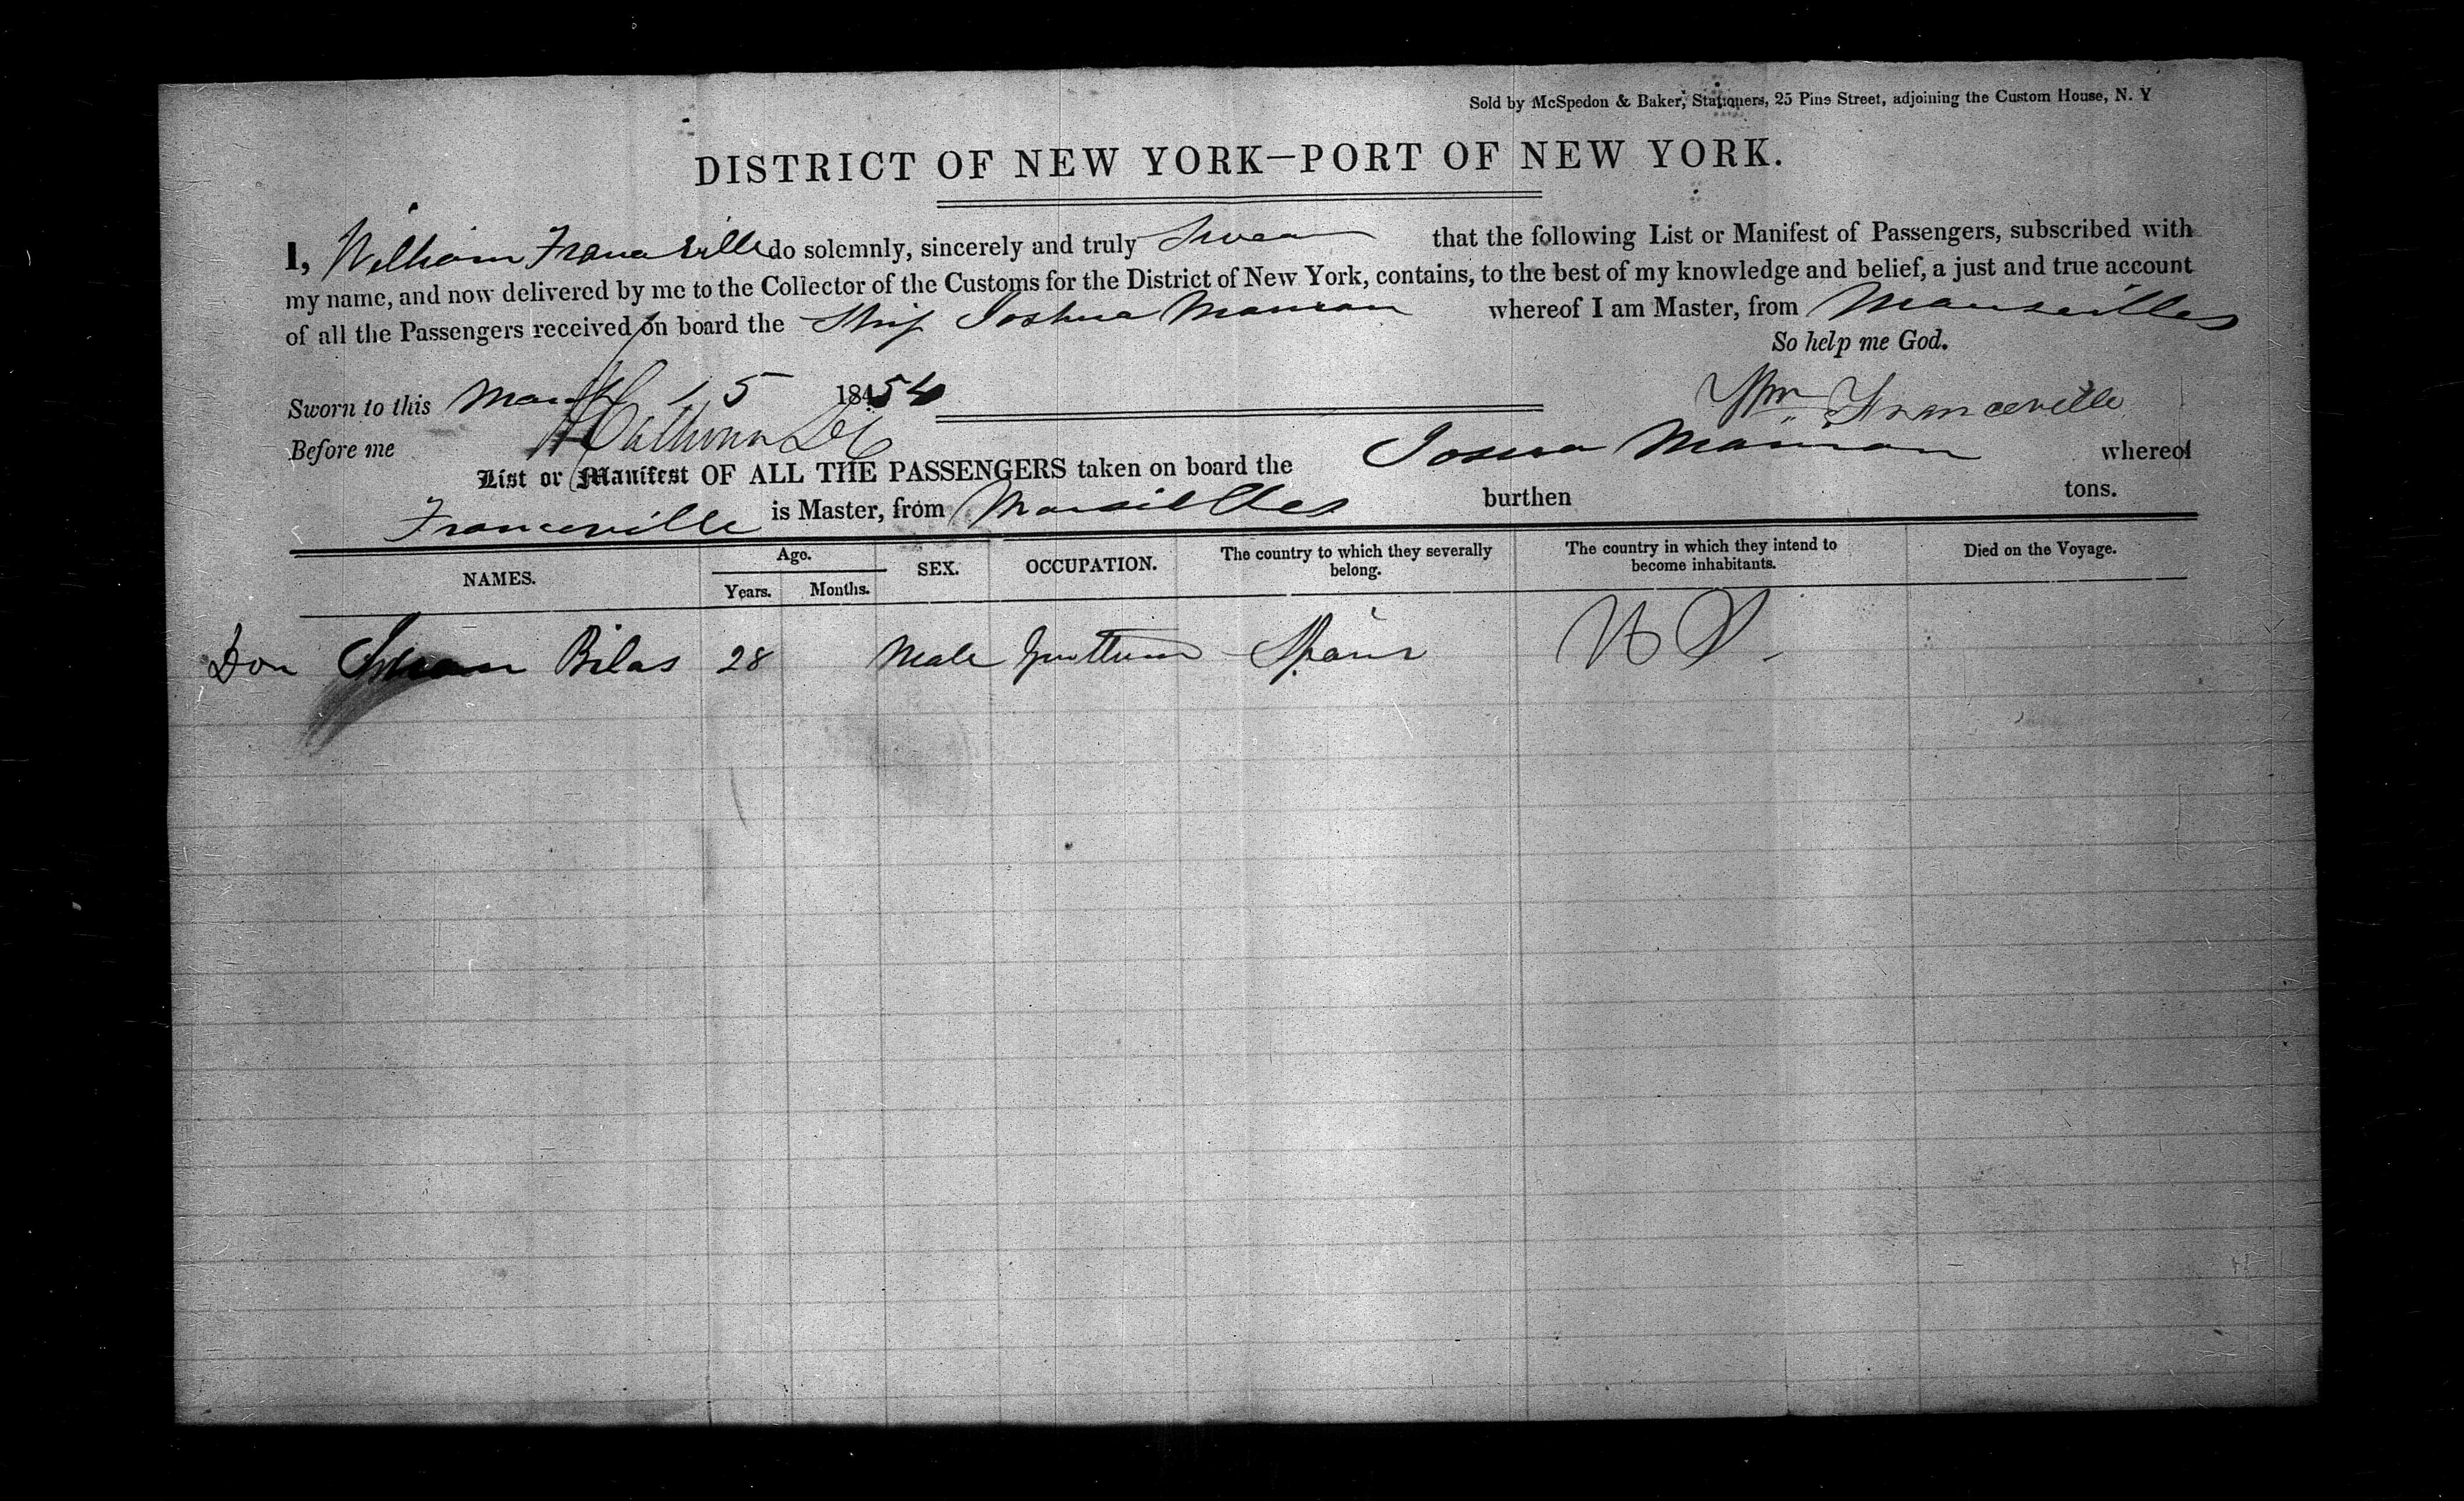 Sold by McSpedon & Baker, Stationers, 25 Pine Street, adjoining the Custom House, N. Y
DISTRICT OF NEW YORK—PORT OF NEW YORK.
I, William Franceville do solemnly, sincerely and truly Swear that the following List or Manifest of Passengers, subscribed with
my name, and now delivered by me to the Collector of the Customs for the District of New York, contains, to the best of my knowledge and belief, a just and true account
of all the Passengers received on board the Ship Joshua Mauran whereof I am Master, from Marseilles
So help me God.
Sworn to this March 15 18454 Wm Franceville
Before me
List or Manifest OF ALL THE PASSENGERS taken on board the Josua Mauran whereof
Franceville is Master, from Marsielles burthen tons.
NAMES. Age. Years. Months. SEX. OCCUPATION. The country to which they severally belong. The country in which they intend to become inhabitants. Died on the Voyage.
Don Bilas 28 Male Spain US.